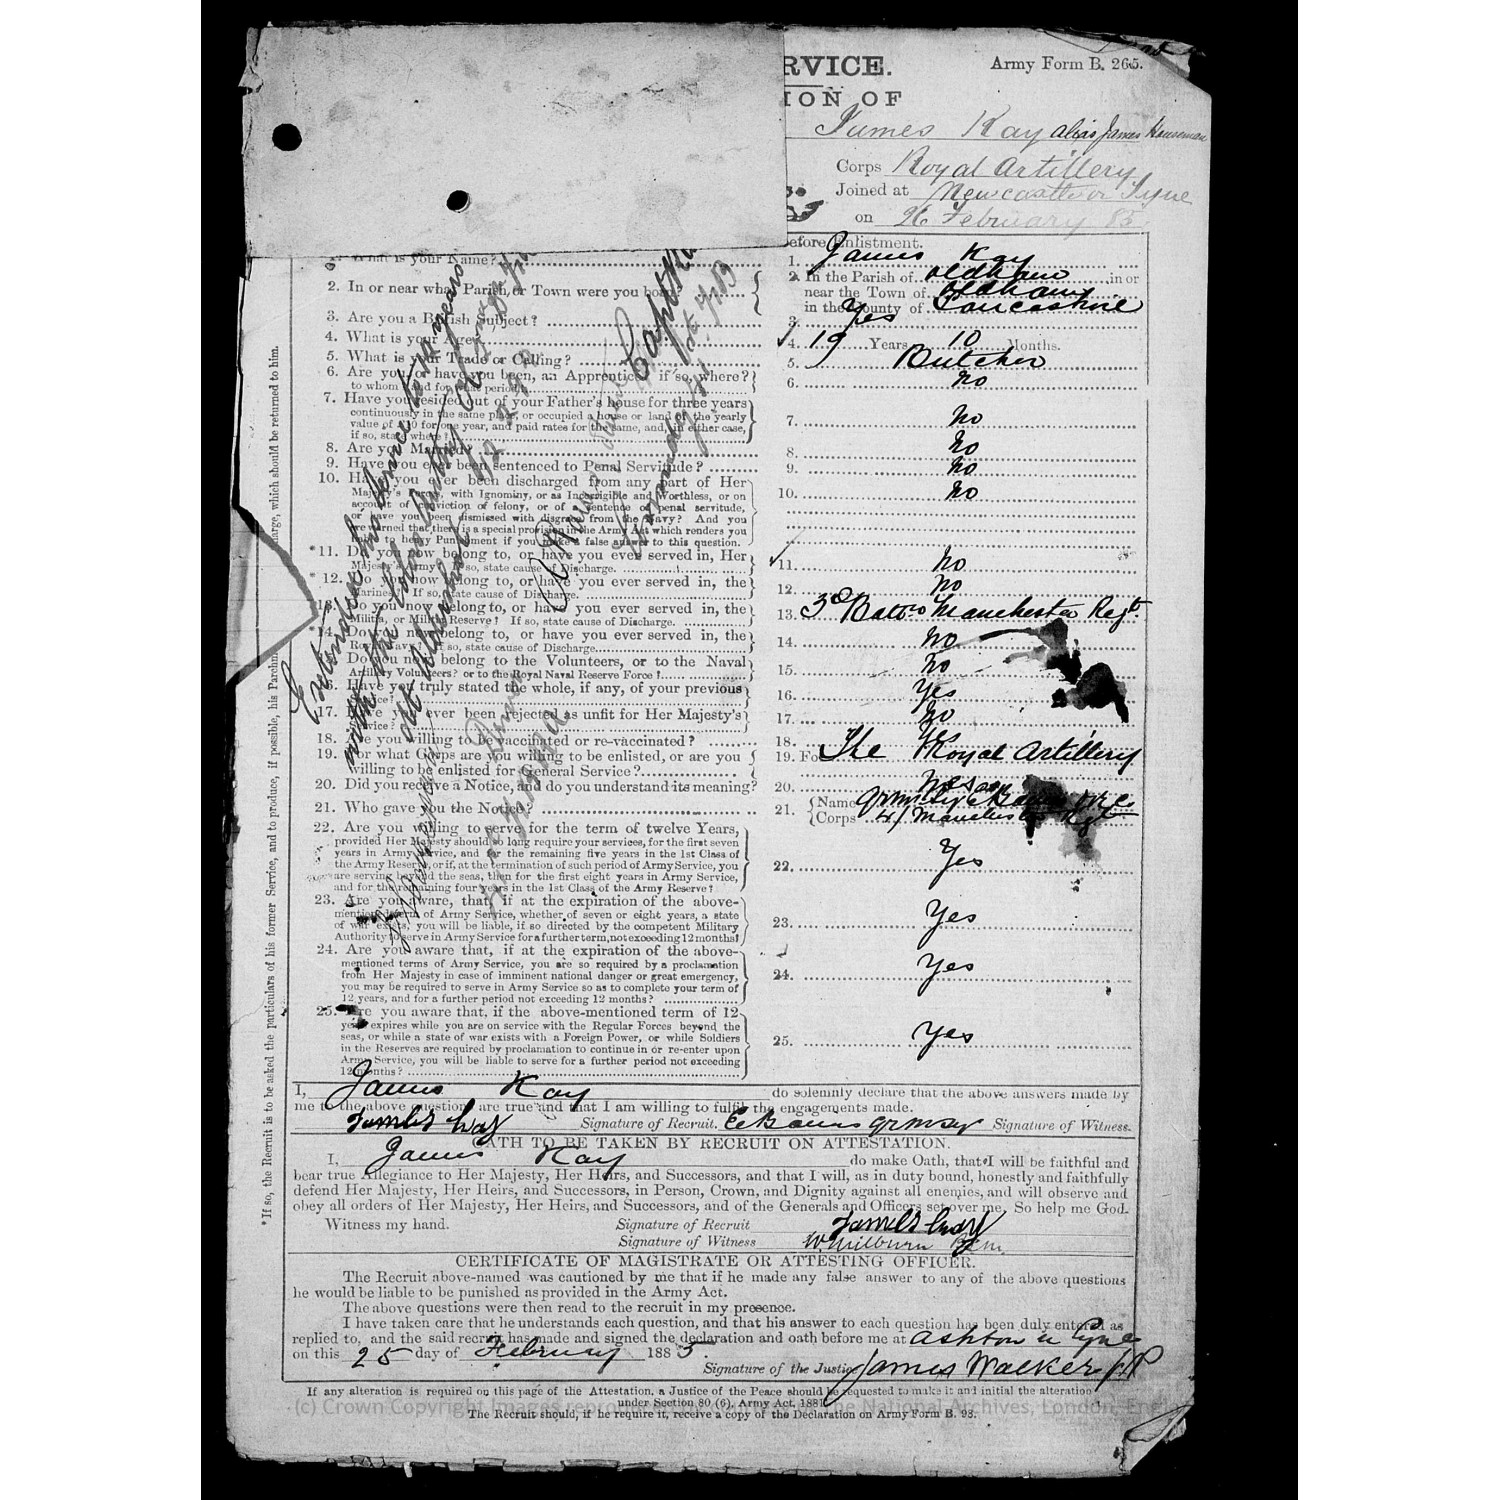 RVICE.
Army Form B. 265.
ION OF
James Kay alias James
Corps Royal Artillery
Joined at Newcastle on Tyne
on 26 February 85
efore Enlistment.
1. What is your Name?
1. James Kay
2. In or near what Parish or Town were you born?
2. In the Parish of Oldham in or
near the Town of Oldham
in the County of Lancashire
3. Are you a British Subject?
3. Yes
4. What is your Age?
4. 19 Years 10 Months.
5. What is your Trade or Calling?
5. Butcher
6. Are you, or have you been, an Apprentice? if so, where?
to whom? and for what period?
6. No
7. Have you resided out of your Father's house for three years
continuously in the same place, or occupied a house or land of the yearly
value of £10 for one year, and paid rates for the same, and, in either case,
if so, state where?
7. No
8. Are you Married?
8. No
9. Have you ever been sentenced to Penal Servitude?
9. No
10. Have you ever been discharged from any part of Her
Majesty's Forces, with Ignominy, or as Incorrigible and Worthless, or on
account of conviction of felony, or of a sentence of penal servitude,
or have you been dismissed with disgrace from the Navy? And you
are warned that there is a special provision in the Army Act which renders you
liable to heavy Punishment if you make a false answer to this question.
10. No
*11. Do you now belong to, or have you ever served in, Her
Majesty's Army? If so, state cause of Discharge.
11. No
*12. Do you now belong to, or have you ever served in, the
Marines? If so, state cause of Discharge.
12. No
13. Do you now belong to, or have you ever served in, the
Militia, or Militia Reserve? If so, state cause of Discharge.
13. 3d Battn Manchester Regt
*14. Do you now belong to, or have you ever served in, the
Royal Navy? If so, state cause of Discharge.
14. No
Do you now belong to the Volunteers, or to the Naval
Artillery Volunteers? or to the Royal Naval Reserve Force?
15. No
16. Have you truly stated the whole, if any, of your previous
Service?
16. Yes
17. Have you ever been rejected as unfit for Her Majesty's
Service?
17. No
18. Are you willing to be vaccinated or re-vaccinated?
18. Yes
19. For what Corps are you willing to be enlisted, or are you
willing to be enlisted for General Service?
19. For The Royal Artillery
20. Did you receive a Notice, and do you understand its meaning?
20. Yes
21. Who gave you the Notice?
21. Name
Corps 4/ Manchester Rgt
22. Are you willing to serve for the term of twelve Years,
provided Her Majesty should so long require your services, for the first seven
years in Army Service, and for the remaining five years in the 1st Class of
the Army Reserve, or if, at the termination of such period of Army Service, you
are serving beyond the seas, then for the first eight years in Army Service,
and for the remaining four years in the 1st Class of the Army Reserve?
22. Yes
23. Are you aware, that, if at the expiration of the above-
mentioned term of Army Service, whether of seven or eight years, a state
of war exists, you will be liable, if so directed by the competent Military
Authority to serve in Army Service for a further term, not exceeding 12 months?
23. Yes
24. Are you aware that, if at the expiration of the above-
mentioned terms of Army Service, you are so required by a proclamation
from Her Majesty in case of imminent national danger or great emergency,
you may be required to serve in Army Service so as to complete your term of
12 years, and for a further period not exceeding 12 months?
24. Yes
25. Are you aware that, if the above-mentioned term of 12
years expires while you are on service with the Regular Forces beyond the
seas, or while a state of war exists with a Foreign Power, or while Soldiers
in the Reserves are required by proclamation to continue in or re-enter upon
Army Service, you will be liable to serve for a further period not exceeding
12 months?
25. Yes
Extended his service to 12 years
with the Colors
at Aldershot
Capt RA
Commanding
*If so, the Recruit is to be asked the particulars of his former Service, and to produce, if possible, his Parchm
harge, which should be returned to him.
I, James Kay do solemnly declare that the above answers made by
me to the above questions are true and that I am willing to fulfil the engagements made.
James Kay Signature of Recruit. Signature of Witness.
OATH TO BE TAKEN BY RECRUIT ON ATTESTATION.
I, James Kay do make Oath, that I will be faithful and
bear true Allegiance to Her Majesty, Her Heirs, and Successors, and that I will, as in duty bound, honestly and faithfully
defend Her Majesty, Her Heirs, and Successors, in Person, Crown, and Dignity against all enemies, and will observe and
obey all orders of Her Majesty, Her Heirs, and Successors, and of the Generals and Officers set over me. So help me God.
Witness my hand. Signature of Recruit James Kay
Signature of Witness W. Milburn
CERTIFICATE OF MAGISTRATE OR ATTESTING OFFICER.
The Recruit above-named was cautioned by me that if he made any false answer to any of the above questions
he would be liable to be punished as provided in the Army Act.
The above questions were then read to the recruit in my presence.
I have taken care that he understands each question, and that his answer to each question has been duly entered as
replied to, and the said recruit has made and signed the declaration and oath before me at Ashton u Lyne
on this 25 day of February 1885.
Signature of the Justice James Walker JP
If any alteration is required on this page of the Attestation, a Justice of the Peace should be requested to make it and initial the alteration
under Section 80 (6), Army Act, 1881.
(c) Crown Copyright Images reproduced by courtesy of The National Archives, London, England
The Recruit should, if he require it, receive a copy of the Declaration on Army Form B. 98.